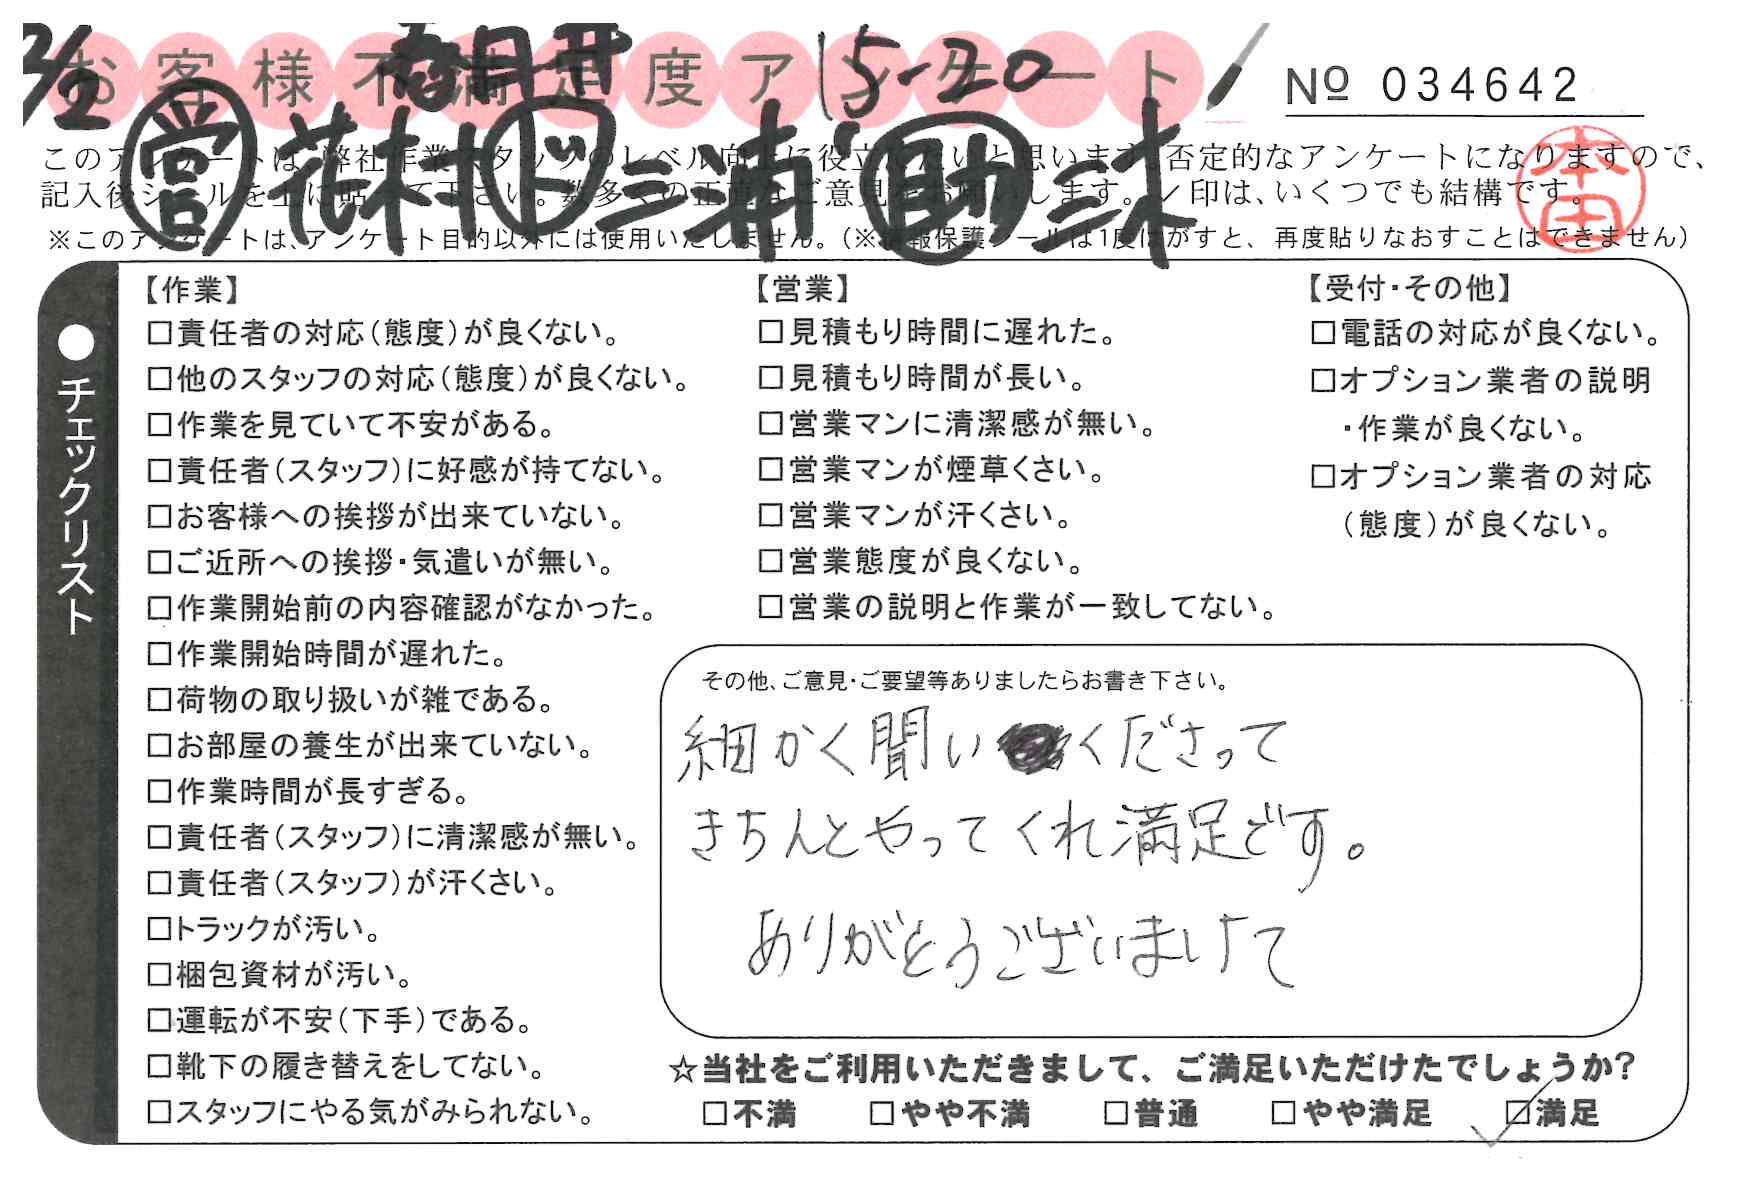 お客様不満足度アンケート
3/2 春日井 15-20
Nº 034642
営 花村 ド 三浦 助 三木
本田
このアンケートは、弊社作業スタッフのレベル向上に役立てたいと思います。否定的なアンケートになりますので、
記入後シールを上に貼って下さい。数多くの正直なご意見をお願いします。✓印は、いくつでも結構です。
※このアンケートは、アンケート目的以外には使用いたしません。(※情報保護シールは1度はがすと、再度貼りなおすことはできません)
●チェックリスト
【作業】
□責任者の対応(態度)が良くない。
□他のスタッフの対応(態度)が良くない。
□作業を見ていて不安がある。
□責任者(スタッフ)に好感が持てない。
□お客様への挨拶が出来ていない。
□ご近所への挨拶・気遣いが無い。
□作業開始前の内容確認がなかった。
□作業開始時間が遅れた。
□荷物の取り扱いが雑である。
□お部屋の養生が出来ていない。
□作業時間が長すぎる。
□責任者(スタッフ)に清潔感が無い。
□責任者(スタッフ)が汗くさい。
□トラックが汚い。
□梱包資材が汚い。
□運転が不安(下手)である。
□靴下の履き替えをしてない。
□スタッフにやる気がみられない。
【営業】
□見積もり時間に遅れた。
□見積もり時間が長い。
□営業マンに清潔感が無い。
□営業マンが煙草くさい。
□営業マンが汗くさい。
□営業態度が良くない。
□営業の説明と作業が一致してない。
【受付・その他】
□電話の対応が良くない。
□オプション業者の説明
・作業が良くない。
□オプション業者の対応
(態度)が良くない。
その他、ご意見・ご要望等ありましたらお書き下さい。
細かく聞いくださって
きちんとやってくれ満足です。
ありがとうございまして
☆当社をご利用いただきまして、ご満足いただけたでしょうか?
□不満 □やや不満 □普通 □やや満足 ☑満足